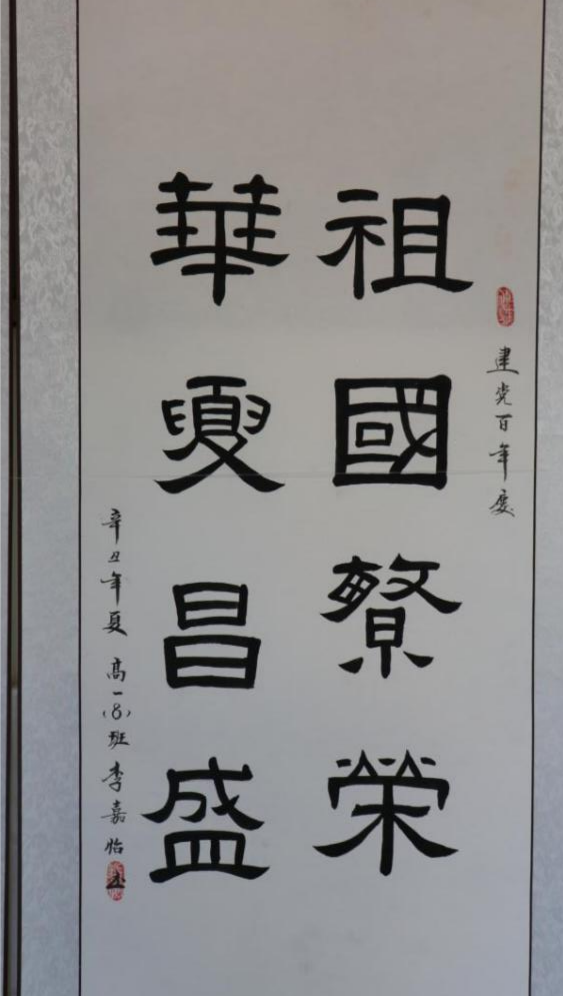 建党百年慶
祖國繁榮
華夏昌盛
辛丑年夏 高一(8)班李嘉怡书